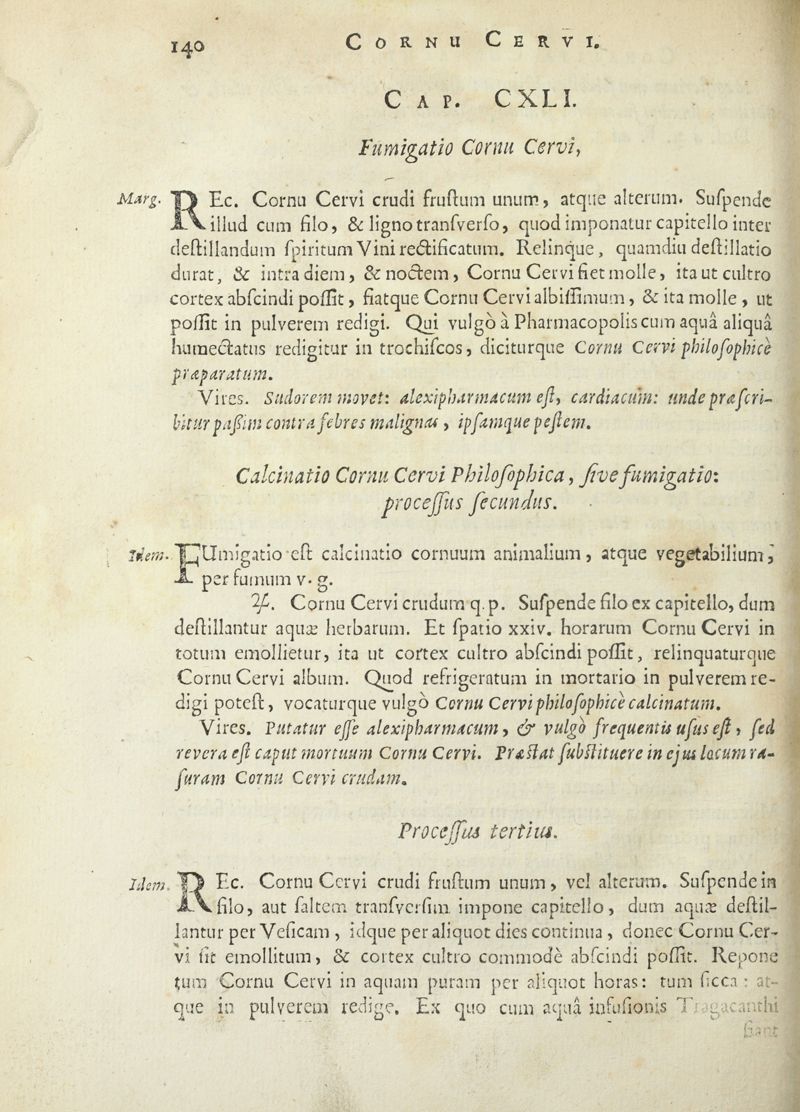 140 CORNU CERVI.
CAP. CXLI.
Fumigatio Cornu Cervi,
Marg. REc. Cornu Cervi crudi fruſtum unum, atque alterum. Suſpende
illud cum filo, & ligno tranſverſo, quod imponatur capitello inter
deſtillandum ſpiritum Vini rectificatum. Relinque, quamdiu deſtillatio
durat, & intra diem, & noctem, Cornu Cervi fiet molle, ita ut cultro
cortex abſcindi poſſit, fiatque Cornu Cervi albiſſimum, & ita molle, ut
poſſit in pulverem redigi. Qui vulgò à Pharmacopolis cum aquâ aliquâ
humectatus redigitur in trochiſcos, diciturque Cornu Cervi philoſophicè
præparatum.
Vires. Sudorem movet: alexipharmacum eſt, cardiacum: unde præſcri-
bitur paſſim contra febres malignas, ipſamque peſtem.
Calcinatio Cornu Cervi Philoſophica, ſive fumigatio:
proceſſus ſecundus.
Idem. FUmigatio eſt calcinatio cornuum animalium, atque vegetabilium,
per fumum v. g.
♃. Cornu Cervi crudum q. p. Suſpende filo ex capitello, dum
deſtillantur aquæ herbarum. Et ſpatio xxiv. horarum Cornu Cervi in
totum emollietur, ita ut cortex cultro abſcindi poſſit, relinquaturque
Cornu Cervi album. Quod refrigeratum in mortario in pulverem re-
digi poteſt, vocaturque vulgò Cornu Cervi philoſophicè calcinatum.
Vires. Putatur eſſe alexipharmacum, & vulgò frequentis uſus eſt, ſed
revera eſt caput mortuum Cornu Cervi. Præſtat ſubſtituere in ejus locum ra-
ſuram Cornu Cervi crudam.
Proceſſus tertius.
Idem. REc. Cornu Cervi crudi fruſtum unum, vel alterum. Suſpende in
filo, aut ſaltem tranſverſim impone capitello, dum aquæ deſtil-
lantur per Veſicam, idque per aliquot dies continua, donec Cornu Cer-
vi ſit emollitum, & cortex cultro commodè abſcindi poſſit. Repone
tum Cornu Cervi in aquam puram per aliquot horas: tum ſicca: at-
que in pulverem redige. Ex quo cum aquâ infuſionis Tragacanthi
fiant